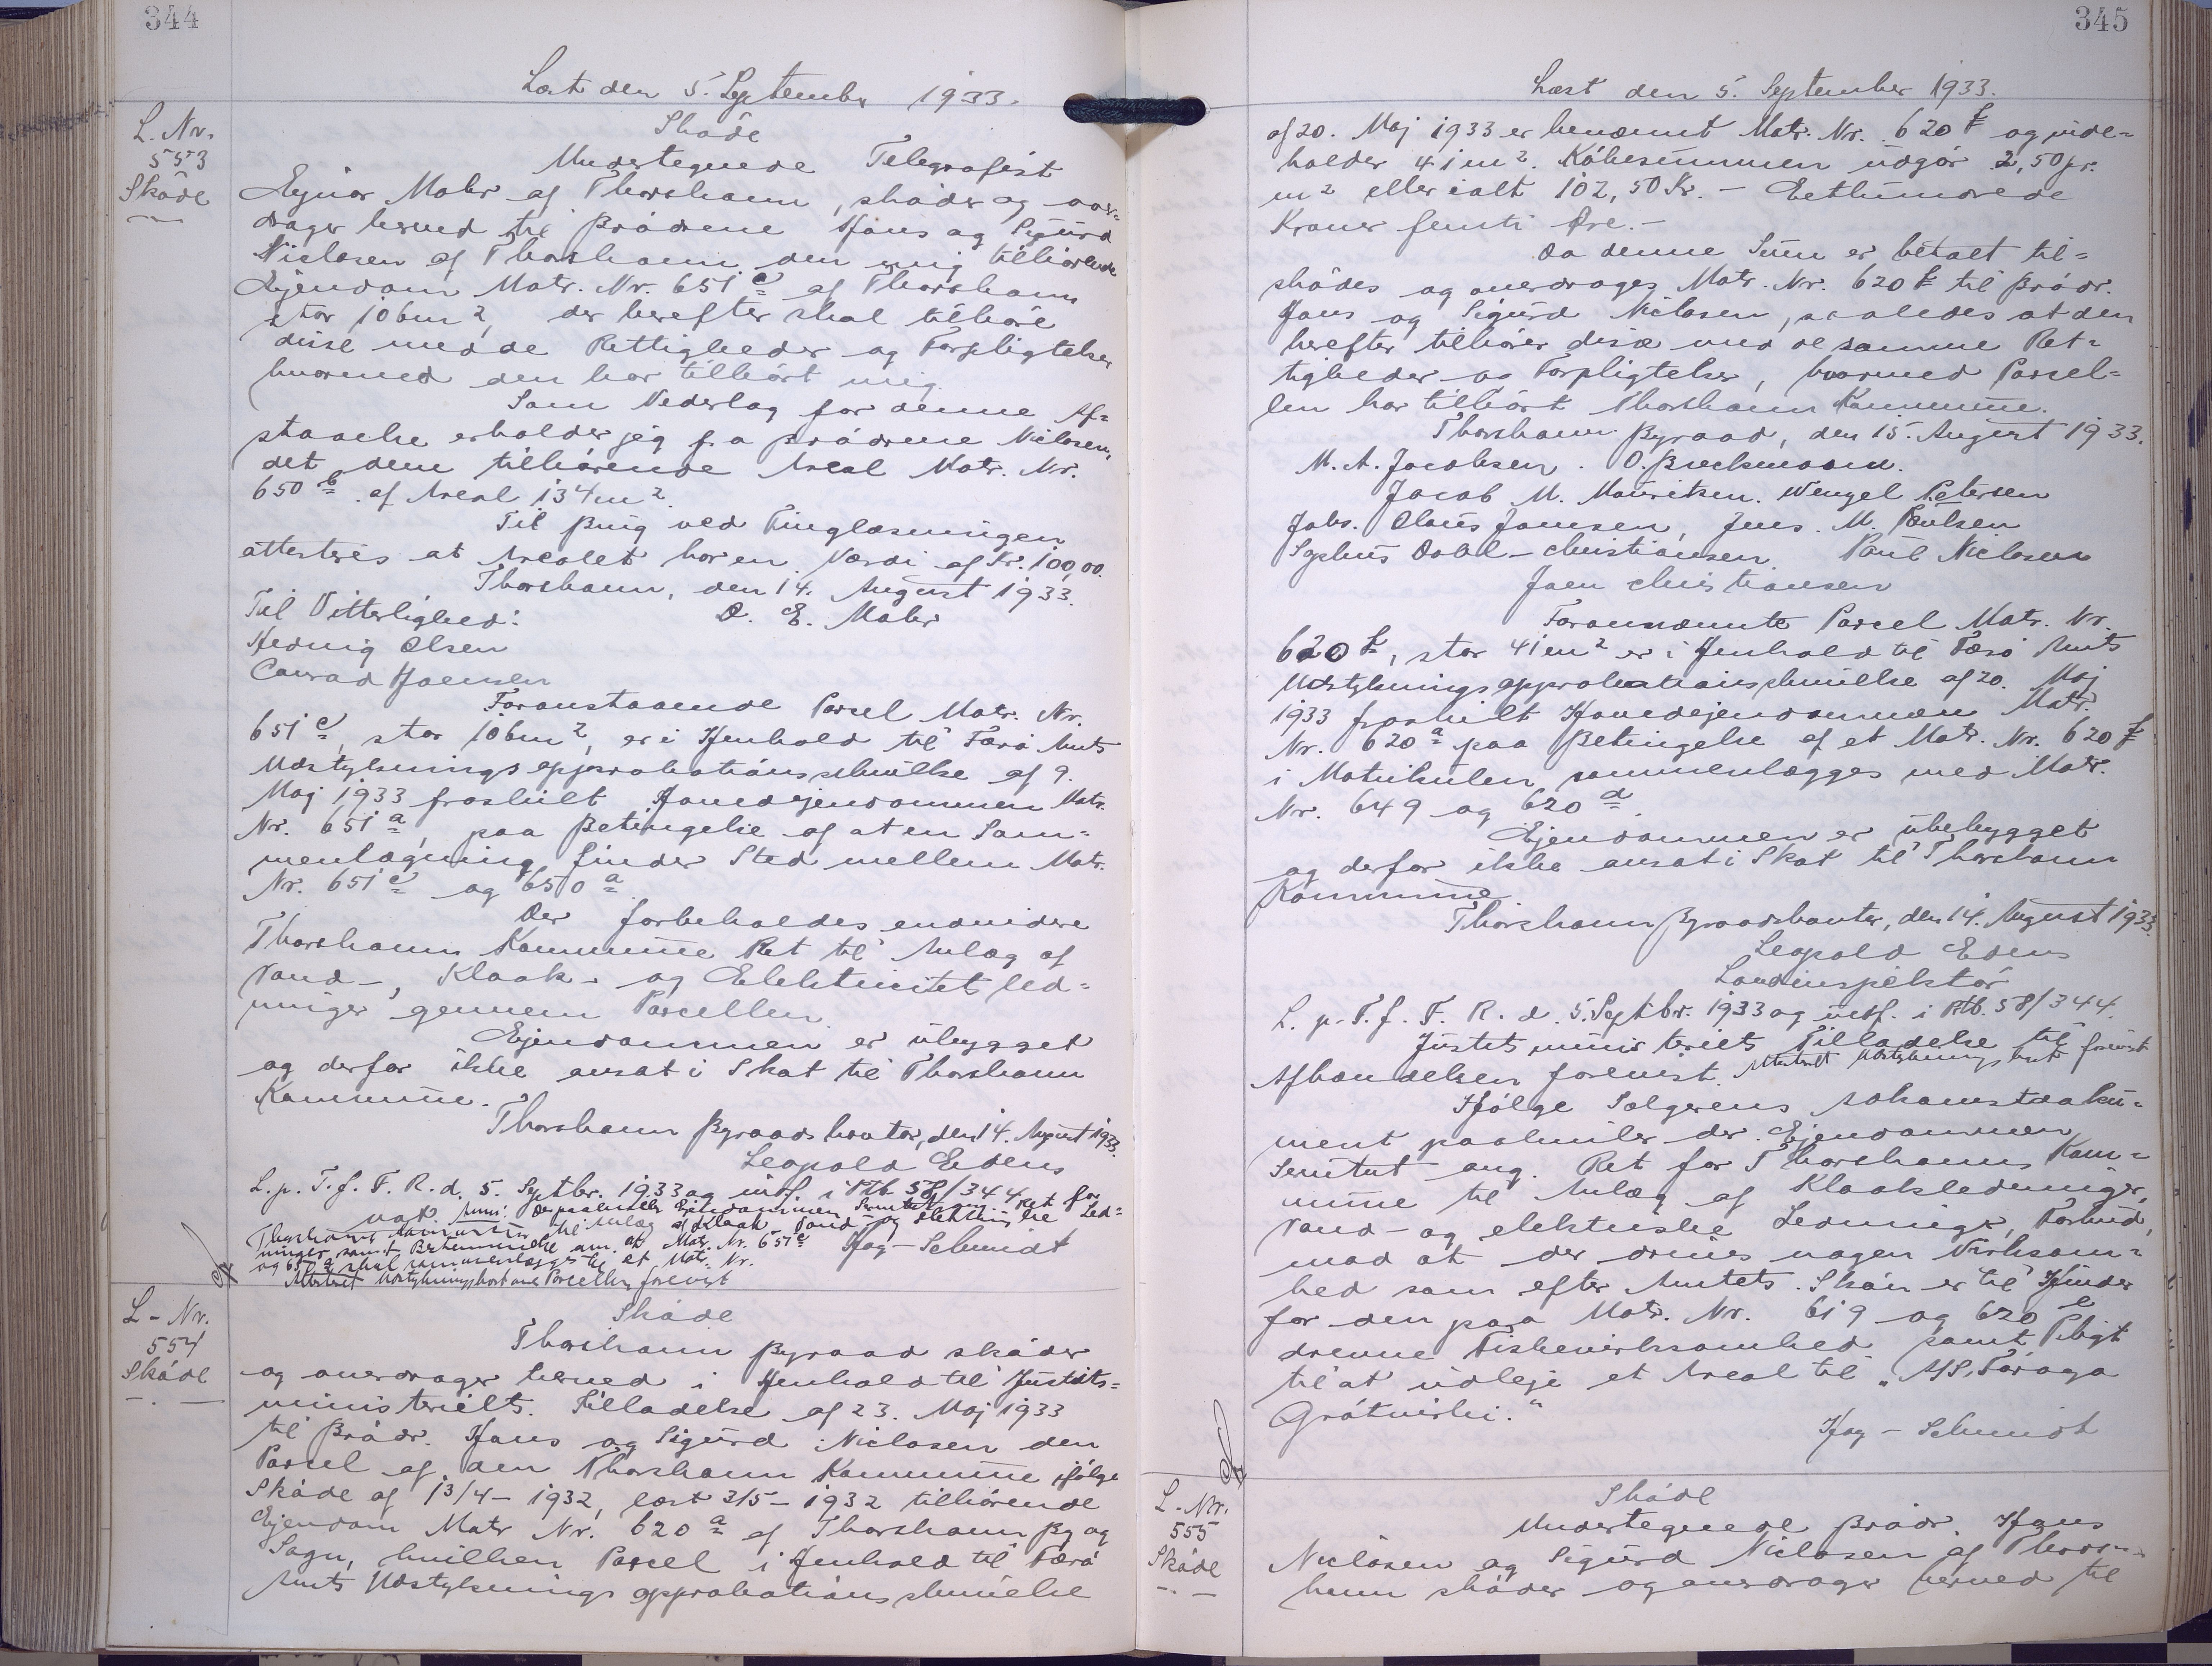 344
Læst den 5. September 1933.
L. Nr.
553
Skøde
Skøde
Undertegnede Telegrafist
Ejnar Mohr af Thorshavn, skøder og over=
drager herved til Brødrene Hans og Sigurd
Niclasen af Thorshavn den mig tilhørende
Ejendom Matr. Nr. 651 c af Thorshavn
stor 106 m2, der herefter skal tilhøre
disse med de Rettigheder og Forpligtelser
hvormed den har tilhørt mig.
Som Vederlag for denne Af=
staaelse erholder jeg fra Brødrene Niclasen,
det dem tilhørende Areal Matr. Nr.
650 b af Areal 134 m2.
Til Brug ved Tinglæsningen
attesteres at Arealet har en Værdi af Kr. 100,00.
Thorshavn, den 14. August 1933.
Til Vitterlighed: D. E. Mohr
Hedvig Olsen
Conrad Joensen
Foranstaaende Parcel Matr. Nr.
651 c, stor 106 m2, er i Henhold til Færø Amts
Udstykningsapprobationsskrivelse af 9.
Maj 1933 fraskilt Hovedejendommen Matr.
Nr. 651 a, paa Betingelse af at en Sam=
menlægning finder Sted mellem Matr.
Nr. 651 c og 650 a.
Der forbeholdes endvidere
Thorshavns Kommune Ret til Anlæg af
Vand-, Kloak- og Elektricitetsled=
ninger gennem Parcellen.
Ejendommen er ubygget
og derfor ikke ansat i Skat til Thorshavn
Kommune.
Thorshavn Byraadskontor, den 14. August 1933.
Leopold Edens
L. p. T. f. F. R. d. 5. Septbr. 1933 og indf. i Rtb. 58/344
vat. Anm: Der paahviler Ejendommen Servitut ang. Ret for
Thorshavns Kommune til Anlæg af Kloak- Vand- og elektriske Led=
ninger samt Bestemmelse om at Matr. Nr. 651 c
og 650 a skal sammenlægges til et Matr. Nr. Hag-Schmidt
Attesteret Udstykningskort over Parcellen forevist
L - Nr.
554
Skøde
Skøde
Thorshavn Byraad skøder
og overdrager herved i Henhold til Justits=
ministeriets Tilladelse af 23. Maj 1933
til Brødr. Hans og Sigurd Niclasen den
Parcel af den Thorshavn Kommune ifølge
Skøde af 13/4 - 1932, læst 3/5 - 1932 tilhørende
Ejendom Matr Nr. 620 a af Thorshavn By og
Sogn, hvilken Parcel i Henhold til Færø
Amts Udstyknings approbationsskrivelse
345
Læst den 5. September 1933.
af 20. Maj 1933 er benævnt Matr. Nr. 620 f og inde=
holder 41 m2. Købesummen udgør 2,50 pr.
m2 eller ialt 102,50 Kr. - Eethundrede
Kroner femti Øre. -
Da denne Sum er betalt til=
skødes og overdrages Matr. Nr. 620 f til Brødr.
Hans og Sigurd Niclasen, saaledes at den
herefter tilhører disse med de samme Ret=
tigheder og Forpligtelser, hvormed Parcel=
len har tilhørt Thorshavn Kommune.
Thorshavn Byraad, den 15. August 1933.
M. A. Jacobsen. O.
Jacob M. Mouritsen. Wenzel Petersen
Johs. Claus Jamsen, Jens. M. Poulsen
Sophus Dahl-Christiansen. Poul Niclasen
Joen Christiansen
Forannævnte Parcel Matr. Nr.
620 f, stor 41 m2 er i Henhold til Færø Amts
Udstykningsapprobationsskrivelse af 20. Maj
1933 fraskilt Hovedejendommen Matr.
Nr. 620 a paa Betingelse af et Matr. Nr. 620 f
i Matrikulen sammenlægges med Matr.
Nr. 649 og 620 d.
Ejendommen er ubebygget
og derfor ikke ansat i Skat til Thorshavn
Kommune.
Thorshavn Byraadskontor, den 14. August 1933.
Leopold Edens
Landinspektør
L. p. T. f. F. R. d. 5. Septbr. 1933 og indf. i Rtb. 58/344.
Justitsministeriets Tilladelse til
Afhændelsen forevist. Attesteret Udstykningskort forevist
Ifølge Sælgerens Adkomstdoku=
ment paahviler der Ejendommen
Servitut ang. Ret for Thorshavns Kom=
mune til Anlæg af Kloakledninger,
Vand- og elektriske Ledninger, Forbud
mod at der drives nogen Virksom=
hed som efter Amtets Skøn er til Hinder
for den paa Matr. Nr. 619 og 620 e
drevne Fiskevirksomhed samt Pligt
til at udleje et Areal til "A/S. Føroga
Grótvirki."
Hag - Schmidt
L - Nr.
555
Skøde
Skøde
Undertegnede Brødr. Hans
Niclasen og Sigurd Niclasen af Thors=
havn skøder og overdrager herved til